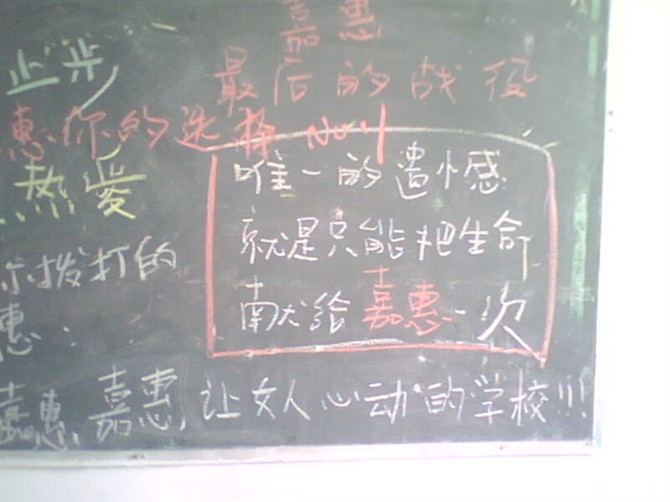 嘉惠
止步
最后的战役
惠你的选择 No.1
热爱
唯一的遗憾
就是只能把生命
献给嘉惠一次
你拨打的
惠:
嘉惠,嘉惠,让女人心动的学校!!!